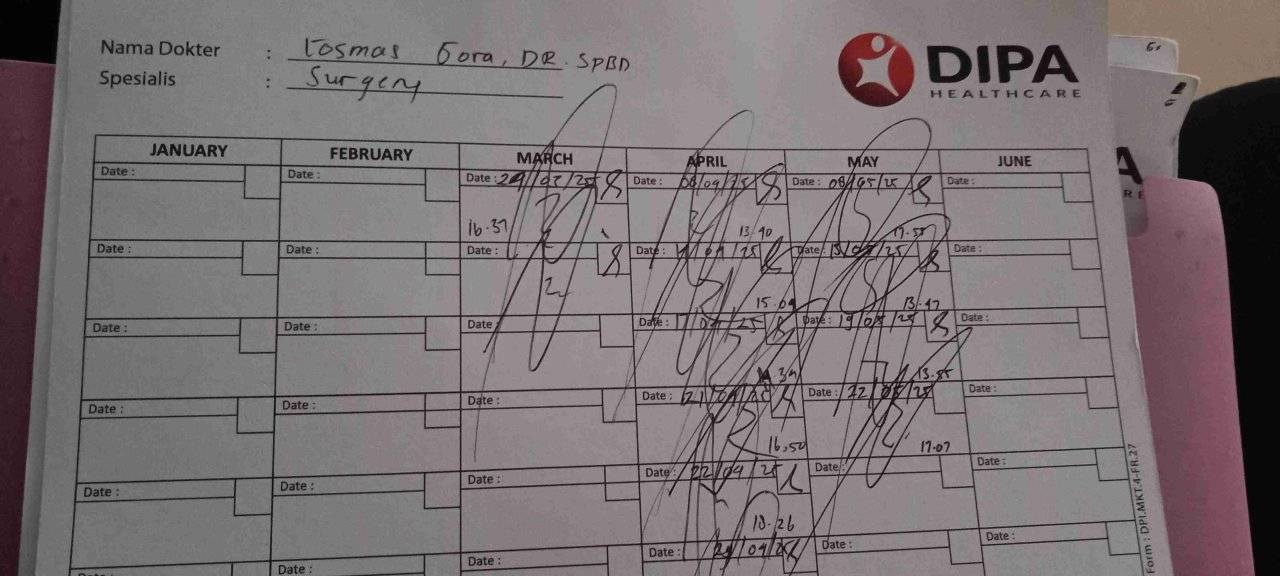 Nama Dokter : Kosmas Gora, DR. SPBD
Spesialis : Surgery
DIPA
HEALTHCARE
JANUARY FEBRUARY MARCH APRIL MAY JUNE
Date : Date : Date : Date : 08/04/25 Date : 08/05/25 Date :
16.37 13.40 17.55
Date : Date : Date : /04/25 Date : 15/05/25 Date :
15.09 13.47
Date : Date : Date : Date : 17/04/25 Date : 19/05/25 Date :
13.55
Date : Date : Date : Date : 21/04/25 Date : 22/05/25 Date :
16.50 17.07
Date : Date : Date : Date : 22/04/25 Date : Date :
18.26
Date : Date : Date : 29/04/25 Date : Date :
Form : DPI.MKT.4-FR.27